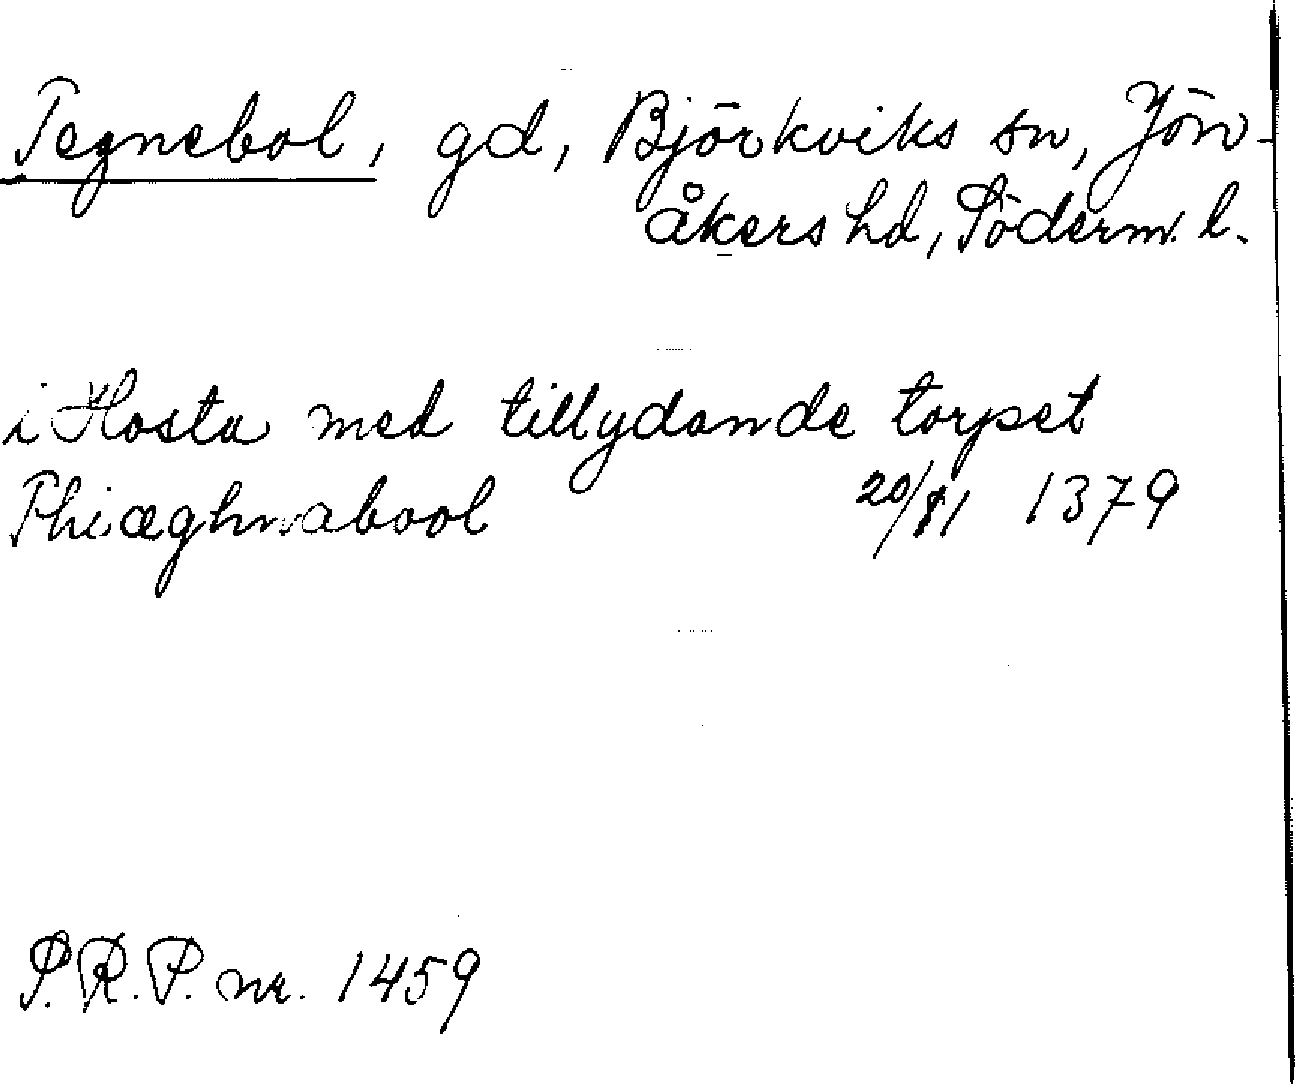 Tegnebol, gd, Björkviks sn, Jön-
åkers hd, Söderm. l.
i Hosta med tillydande torpet
Thiæghnabool 20/81 1379
S.R.P. nr. 1459